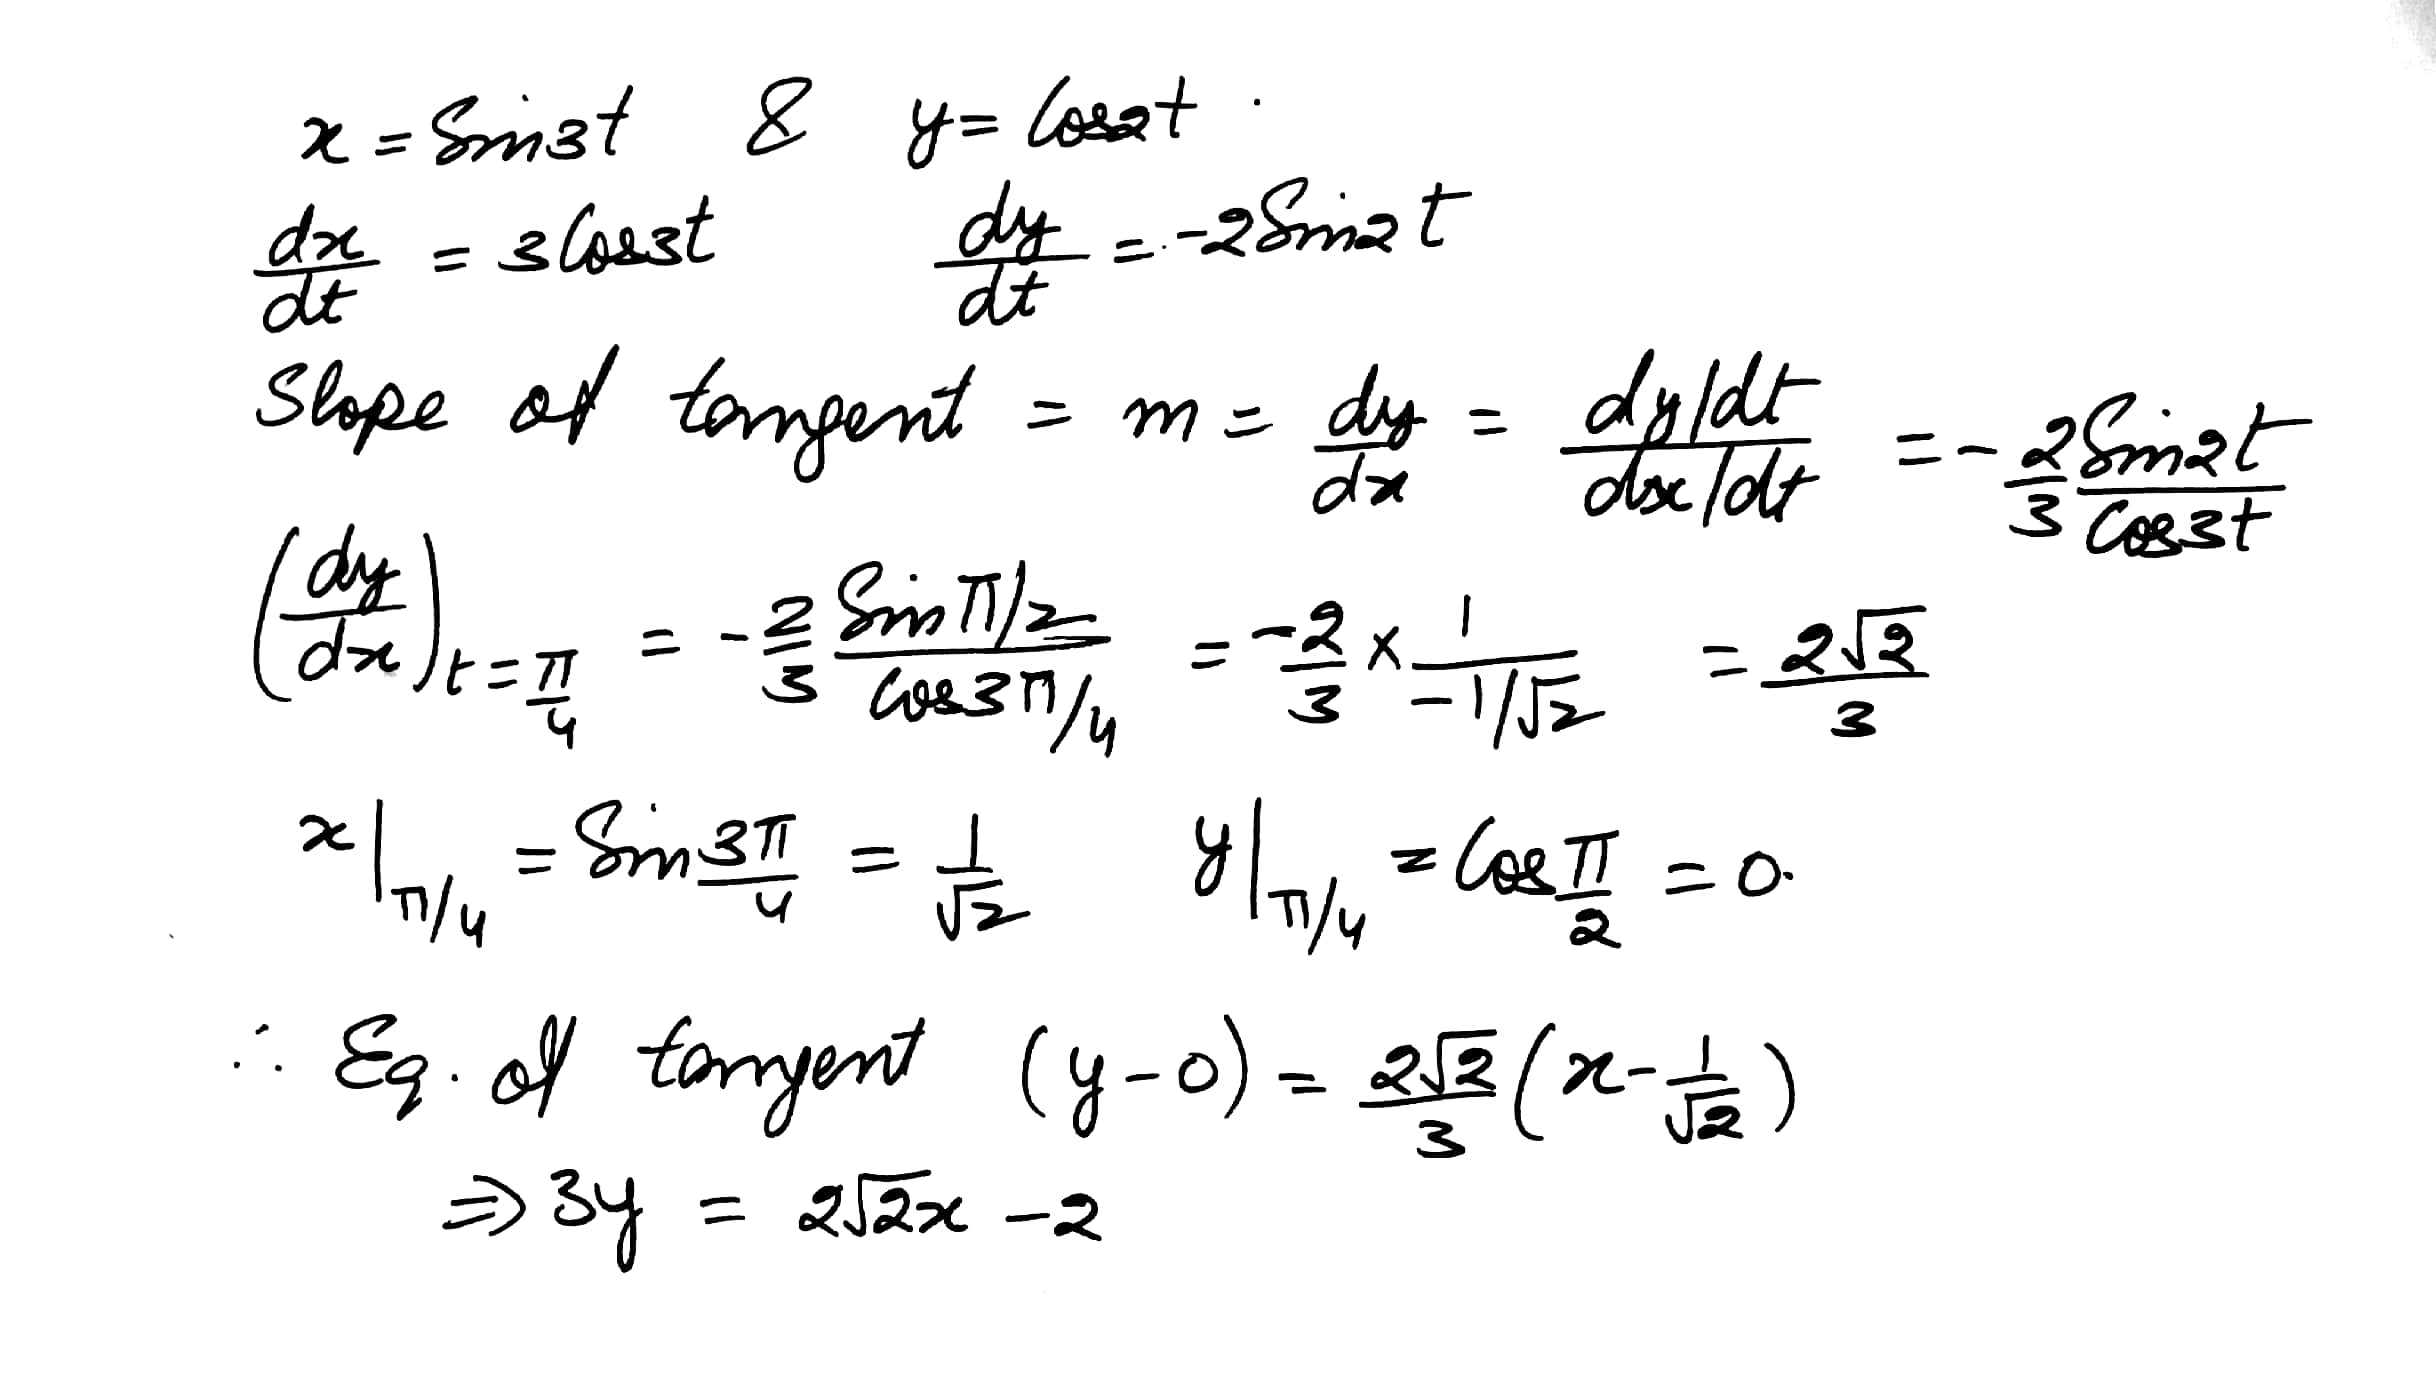 x = Sin3t & y = Cos2t
dx/dt = 3Cos3t dy/dt = -2Sin2t
Slope of tangent = m = dy/dx = (dy/dt)/(dx/dt) = -2/3 Sin2t/Cos3t
(dy/dx)t=π/4 = -2/3 (Sin π/2)/(Cos 3π/4) = -2/3 × 1/(-1/√2) = 2√2/3
x|π/4 = Sin 3π/4 = 1/√2 y|π/4 = Cos π/2 = 0.
∴ Eq. of tangent (y-0) = 2√2/3 (x - 1/√2)
⇒ 3y = 2√2x - 2